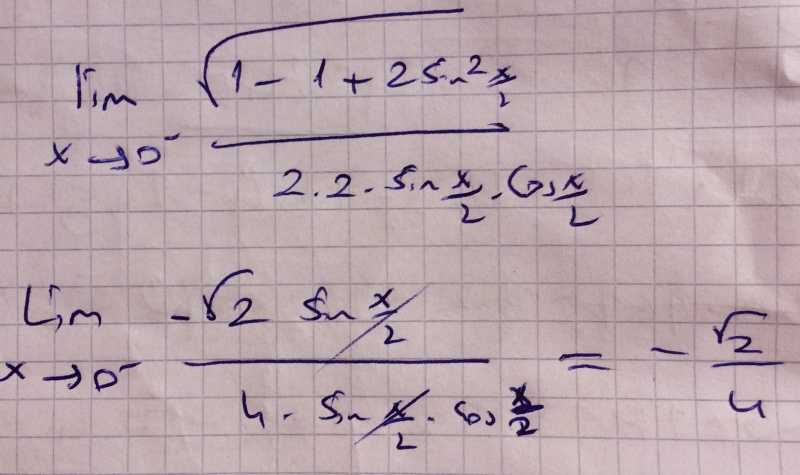 lim √(1 - 1 + 2 sin² x/2)
x → 0⁻ 2 . 2 . sin x/2 . cos x/2
Lim -√2 sin x/2
x → 0⁻ 4 . sin x/2 . cos x/2 = - √2/4